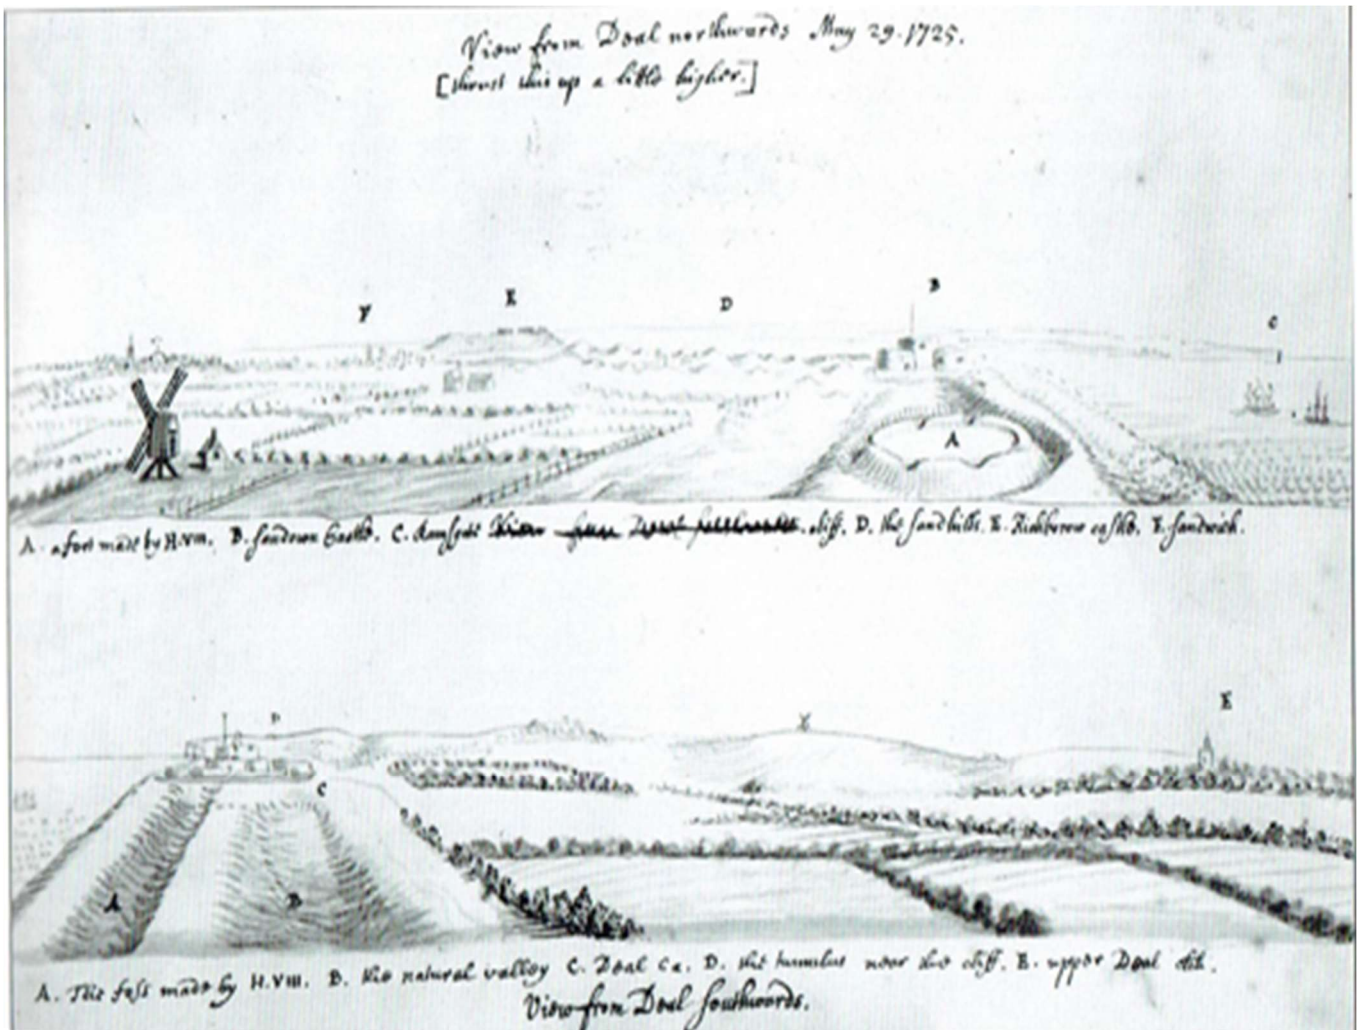 View from Deal northwards May 29. 1725.
[thrust this up a little higher.]
F E D B C
A
A. a fort made by H.VIII. B. Sandown Castle. C. Ramsgate cliff. D. the sandhills. E. Richborow castle. F. Sandwich.
E
D
C
A B
A. The foss made by H.VIII. B. the natural valley C. Deal Ca. D. the tumulus near the cliff. E. upper Deal
View from Deal Southwards.